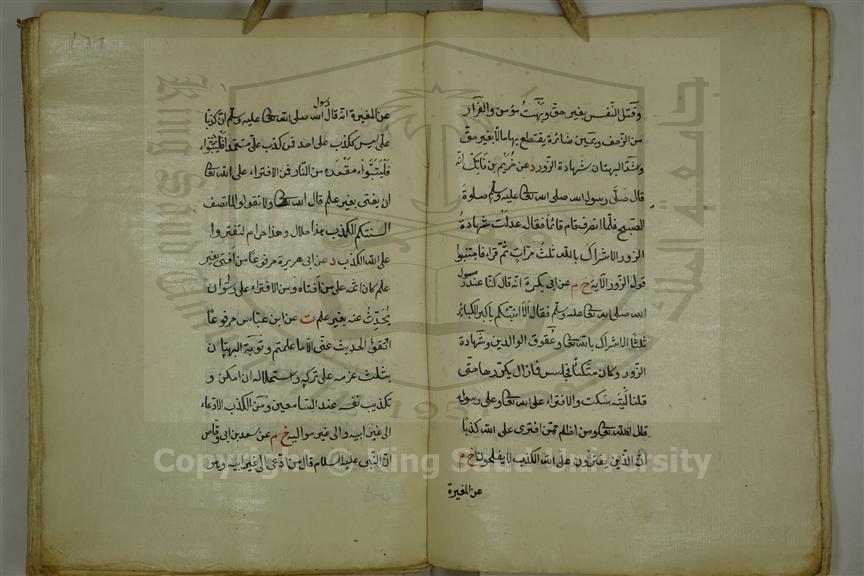 وقتل النفس بغير حق وبهت مؤمن والفرار
من الزحف ويمين صائرة يقتطع بها مالا بغير حق
واشد البهتان شهادة الزور د عن خريم بن فاتك انه
قال صلى رسول الله صلى الله تعالى عليه وسلم صلوة
الصبح فلما انصرف قام قائما فقال عدلت شهادة
الزور الاشراك بالله ثلث مرات ثم قراء فاجتنبوا
قول الزور الآية خ م عن ابى بكرة انه قال كنا عند رسول
الله صلى الله تعالى عليه وسلم فقال الا انبئكم باكبر الكبائر
ثلثا الاشراك بالله تعالى وعقوق الوالدين وشهادة
الزور وكان متكئا فجلس فما زال يكررها حتى
قلنا ليته سكت والافتراء على الله تعالى وعلى رسوله
قال الله تعالى ومن اظلم ممن افترى على الله كذبا
ان الذين يفترون على الله الكذب لا يفلحون خ م
عن المغيرة
١٢١
عن المغيرة انه قال رسول الله صلى الله تعالى عليه وسلم ان كذبا
على ليس ككذب على احد فمن كذب على متعمدا فليتبوأ
فليتبوأ مقعده من النار فمن الافتراء على الله تعالى
ان يفتى بغير علم قال الله تعالى ولا تقولوا لما تصف
السنتكم الكذب هذا حلال وهذا حرام لتفتروا
على الله الكذب د عن ابى هريرة مرفوعا من افتى بغير
علم كان اثمه على من افتاه ومن الافتراء على رسول ان
يحدث عنه بغير علم ت عن ابن عباس مرفوعا
اتقوا الحديث عنى الا ما علمتم وتوبة البهتان
بثلث عزمه على تركه واستحلاله ان امكن و
تكذيب نفسه عند السامعين ومن الكذب الادعاء
الى غير ابيه والى غير مواليه خ م عن سعد بن ابى وقاص
ان النبى عليه السلام قال من ادعى الى غير ابيه وهو
Copyright © King Saud University
King Saud University
جامعة الملك سعود
1957